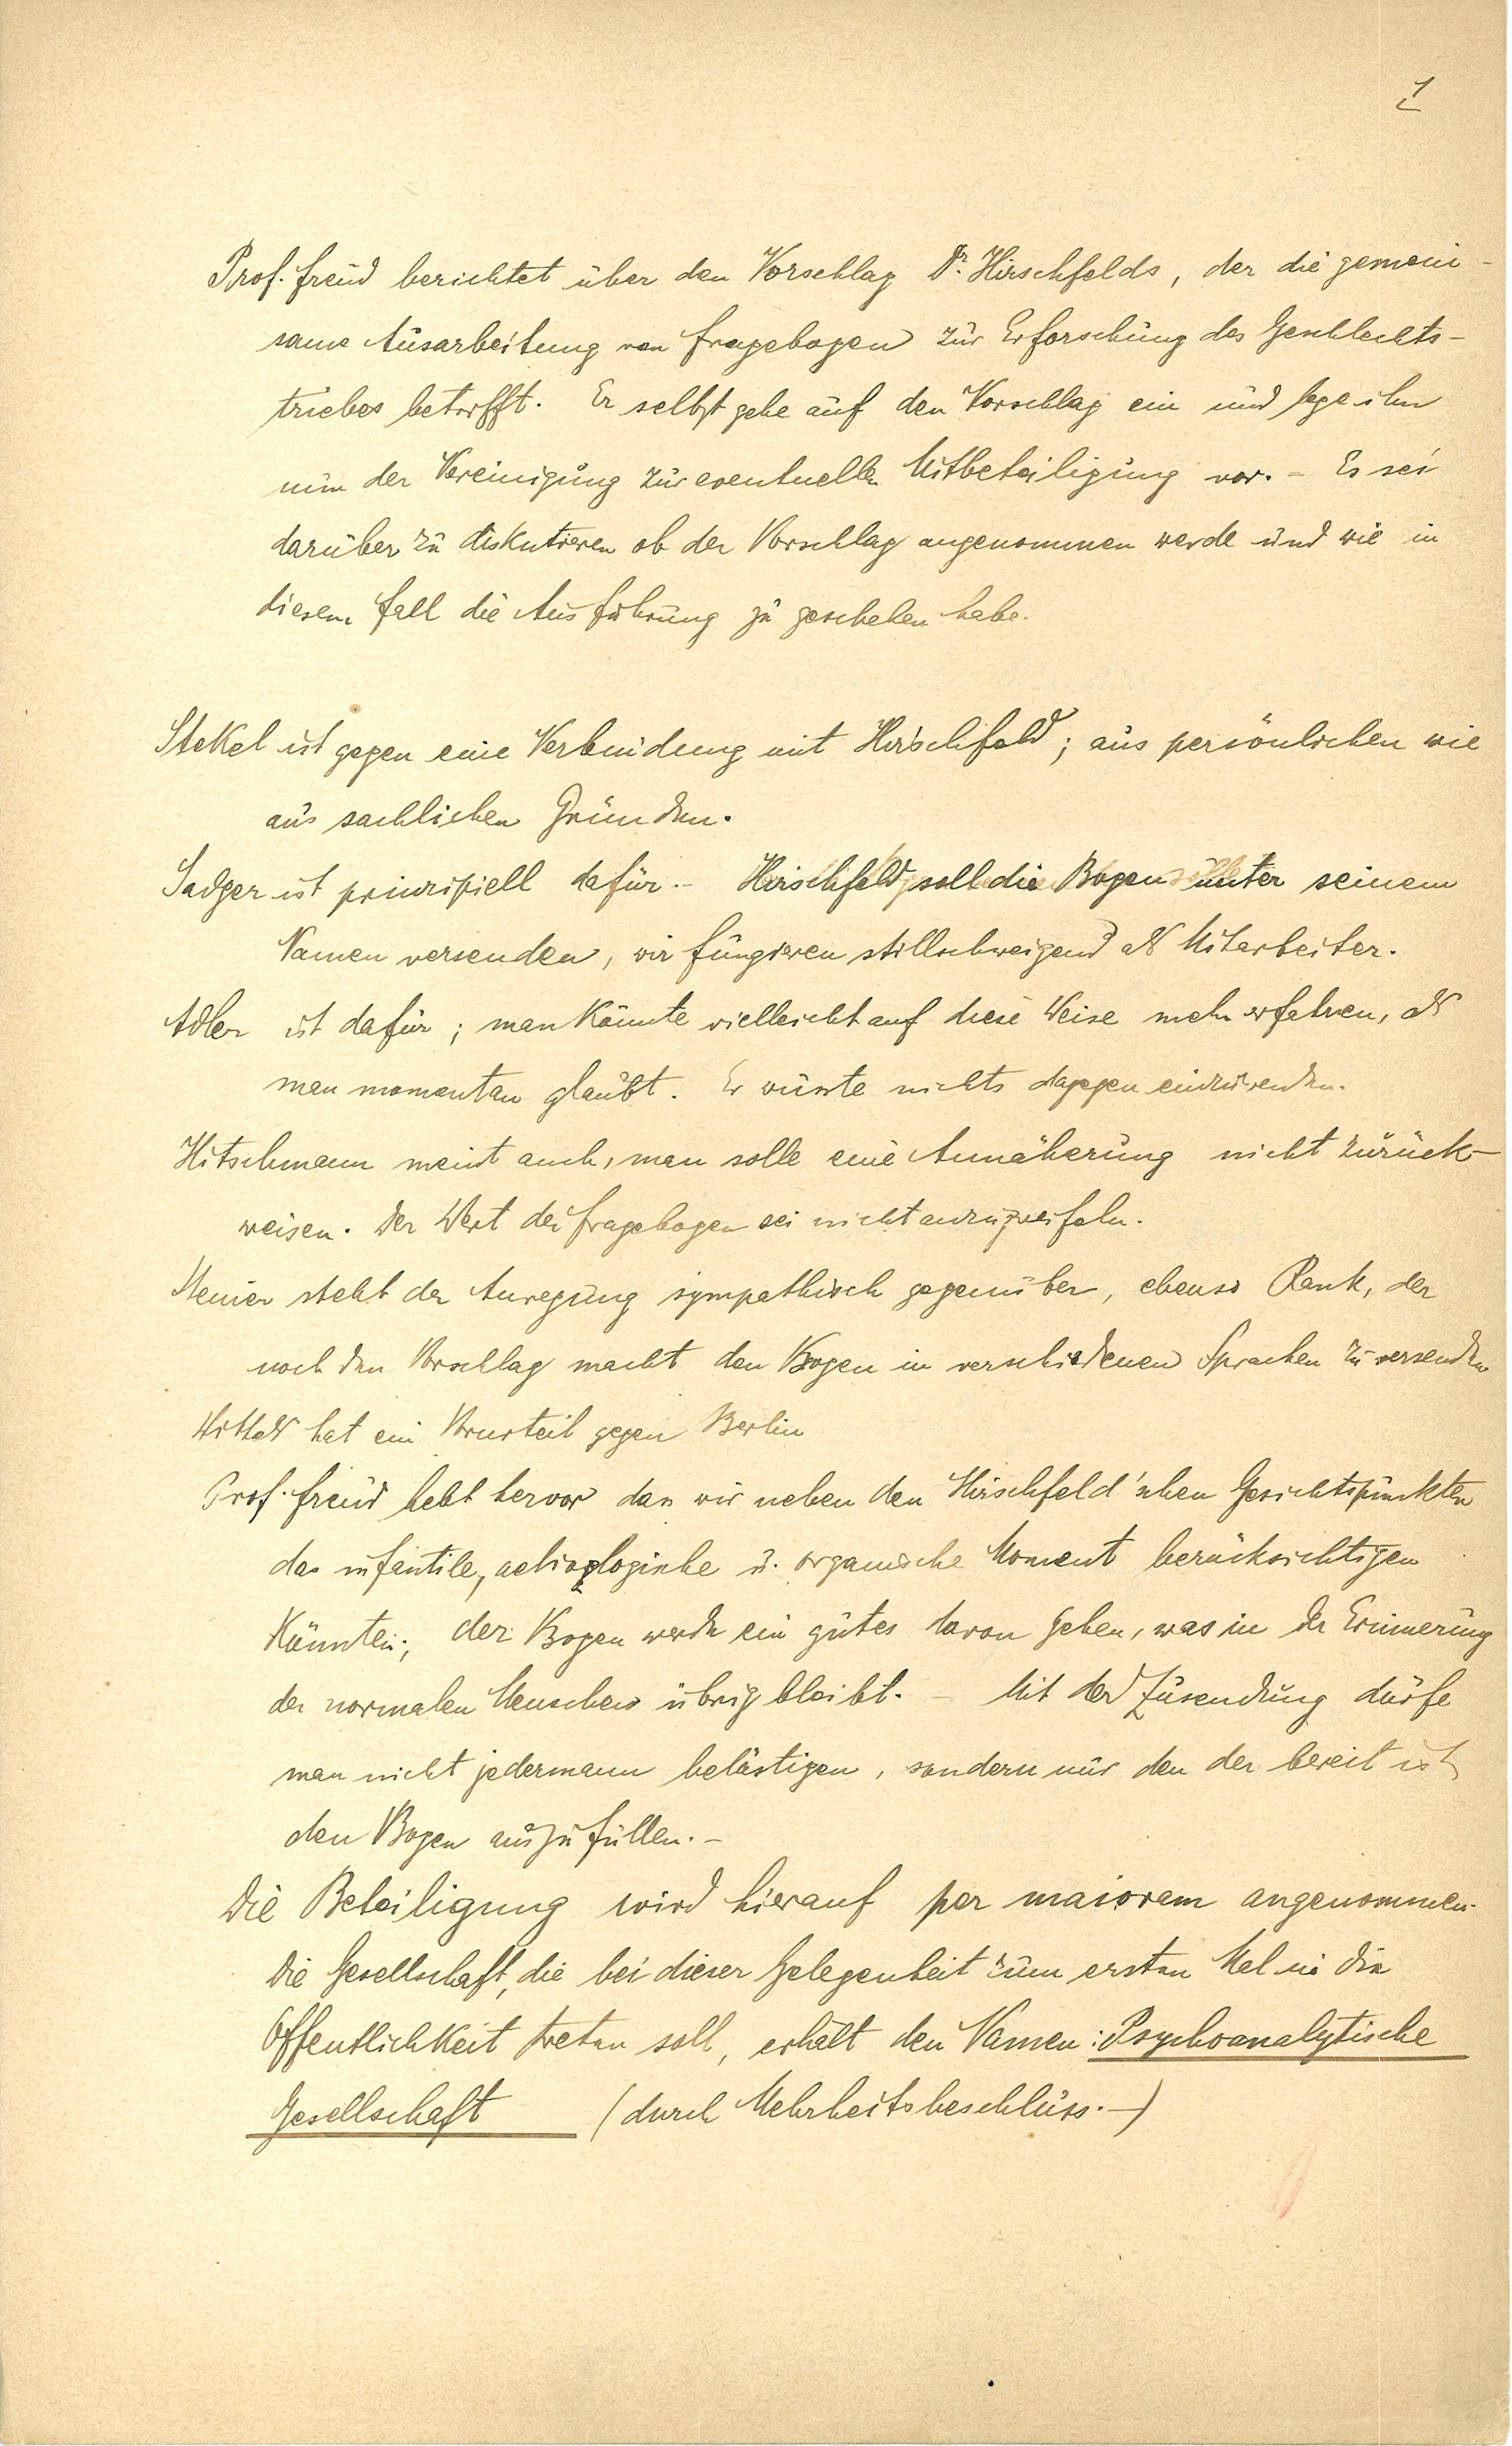 1
Prof. Freud berichtet über den Vorschlag Dr. Hirschfelds, der die gemein-
same Ausarbeitung von Fragebogen zur Erforschung des Geschlechts-
triebes betrifft. Er selbst gehe auf den Vorschlag ein und lege ihn
nun der Vereinigung zur eventuellen Mitbeteiligung vor. – Es sei
darüber zu diskutieren ob der Vorschlag angenommen werde und wie in
diesem Fall die Ausführung zu geschehen habe.
Stekel ist gegen eine Verbindung mit Hirschfeld; aus persönlichen wie
aus sachlichen Gründen.
Sadger ist prinzipiell dafür. – Hirschfeld soll die Bogen unter seinem
Namen versenden, wir fungieren stillschweigend als Mitarbeiter.
Adler ist dafür; man könnte vielleicht auf diese Weise mehr erfahren, als
man momentan glaubt. Er wüsste nichts dagegen einzuwenden.
Hitschmann meint auch, man solle eine Annäherung nicht zurück-
weisen. Der Wert der Fragebogen sei nicht anzuzweifeln.
Steiner steht der Anregung sympathisch gegenüber, ebenso Rank, der
noch den Vorschlag macht den Bogen in verschiedenen Sprachen zu versenden
Wittels hat ein Vorurteil gegen Berlin
Prof. Freud hebt hervor dass wir neben den Hirschfeld'schen Gesichtspunkten
das infantile, aetiologische u. organische Moment berücksichtigen
könnten; der Bogen werde ein gutes davon geben, was in der Erinnerung
der normalen Menschen übrig bleibt. – Mit der Zusendung dürfe
man nicht jedermann belästigen, sondern nur den der bereit ist
den Bogen auszufüllen. –
Die Beteiligung wird hierauf per maiorem angenommen.
Die Gesellschaft, die bei dieser Gelegenheit zum ersten Mal in die
Öffentlichkeit treten soll, erhält den Namen: Psychoanalytische
Gesellschaft (durch Mehrheitsbeschluss. –)